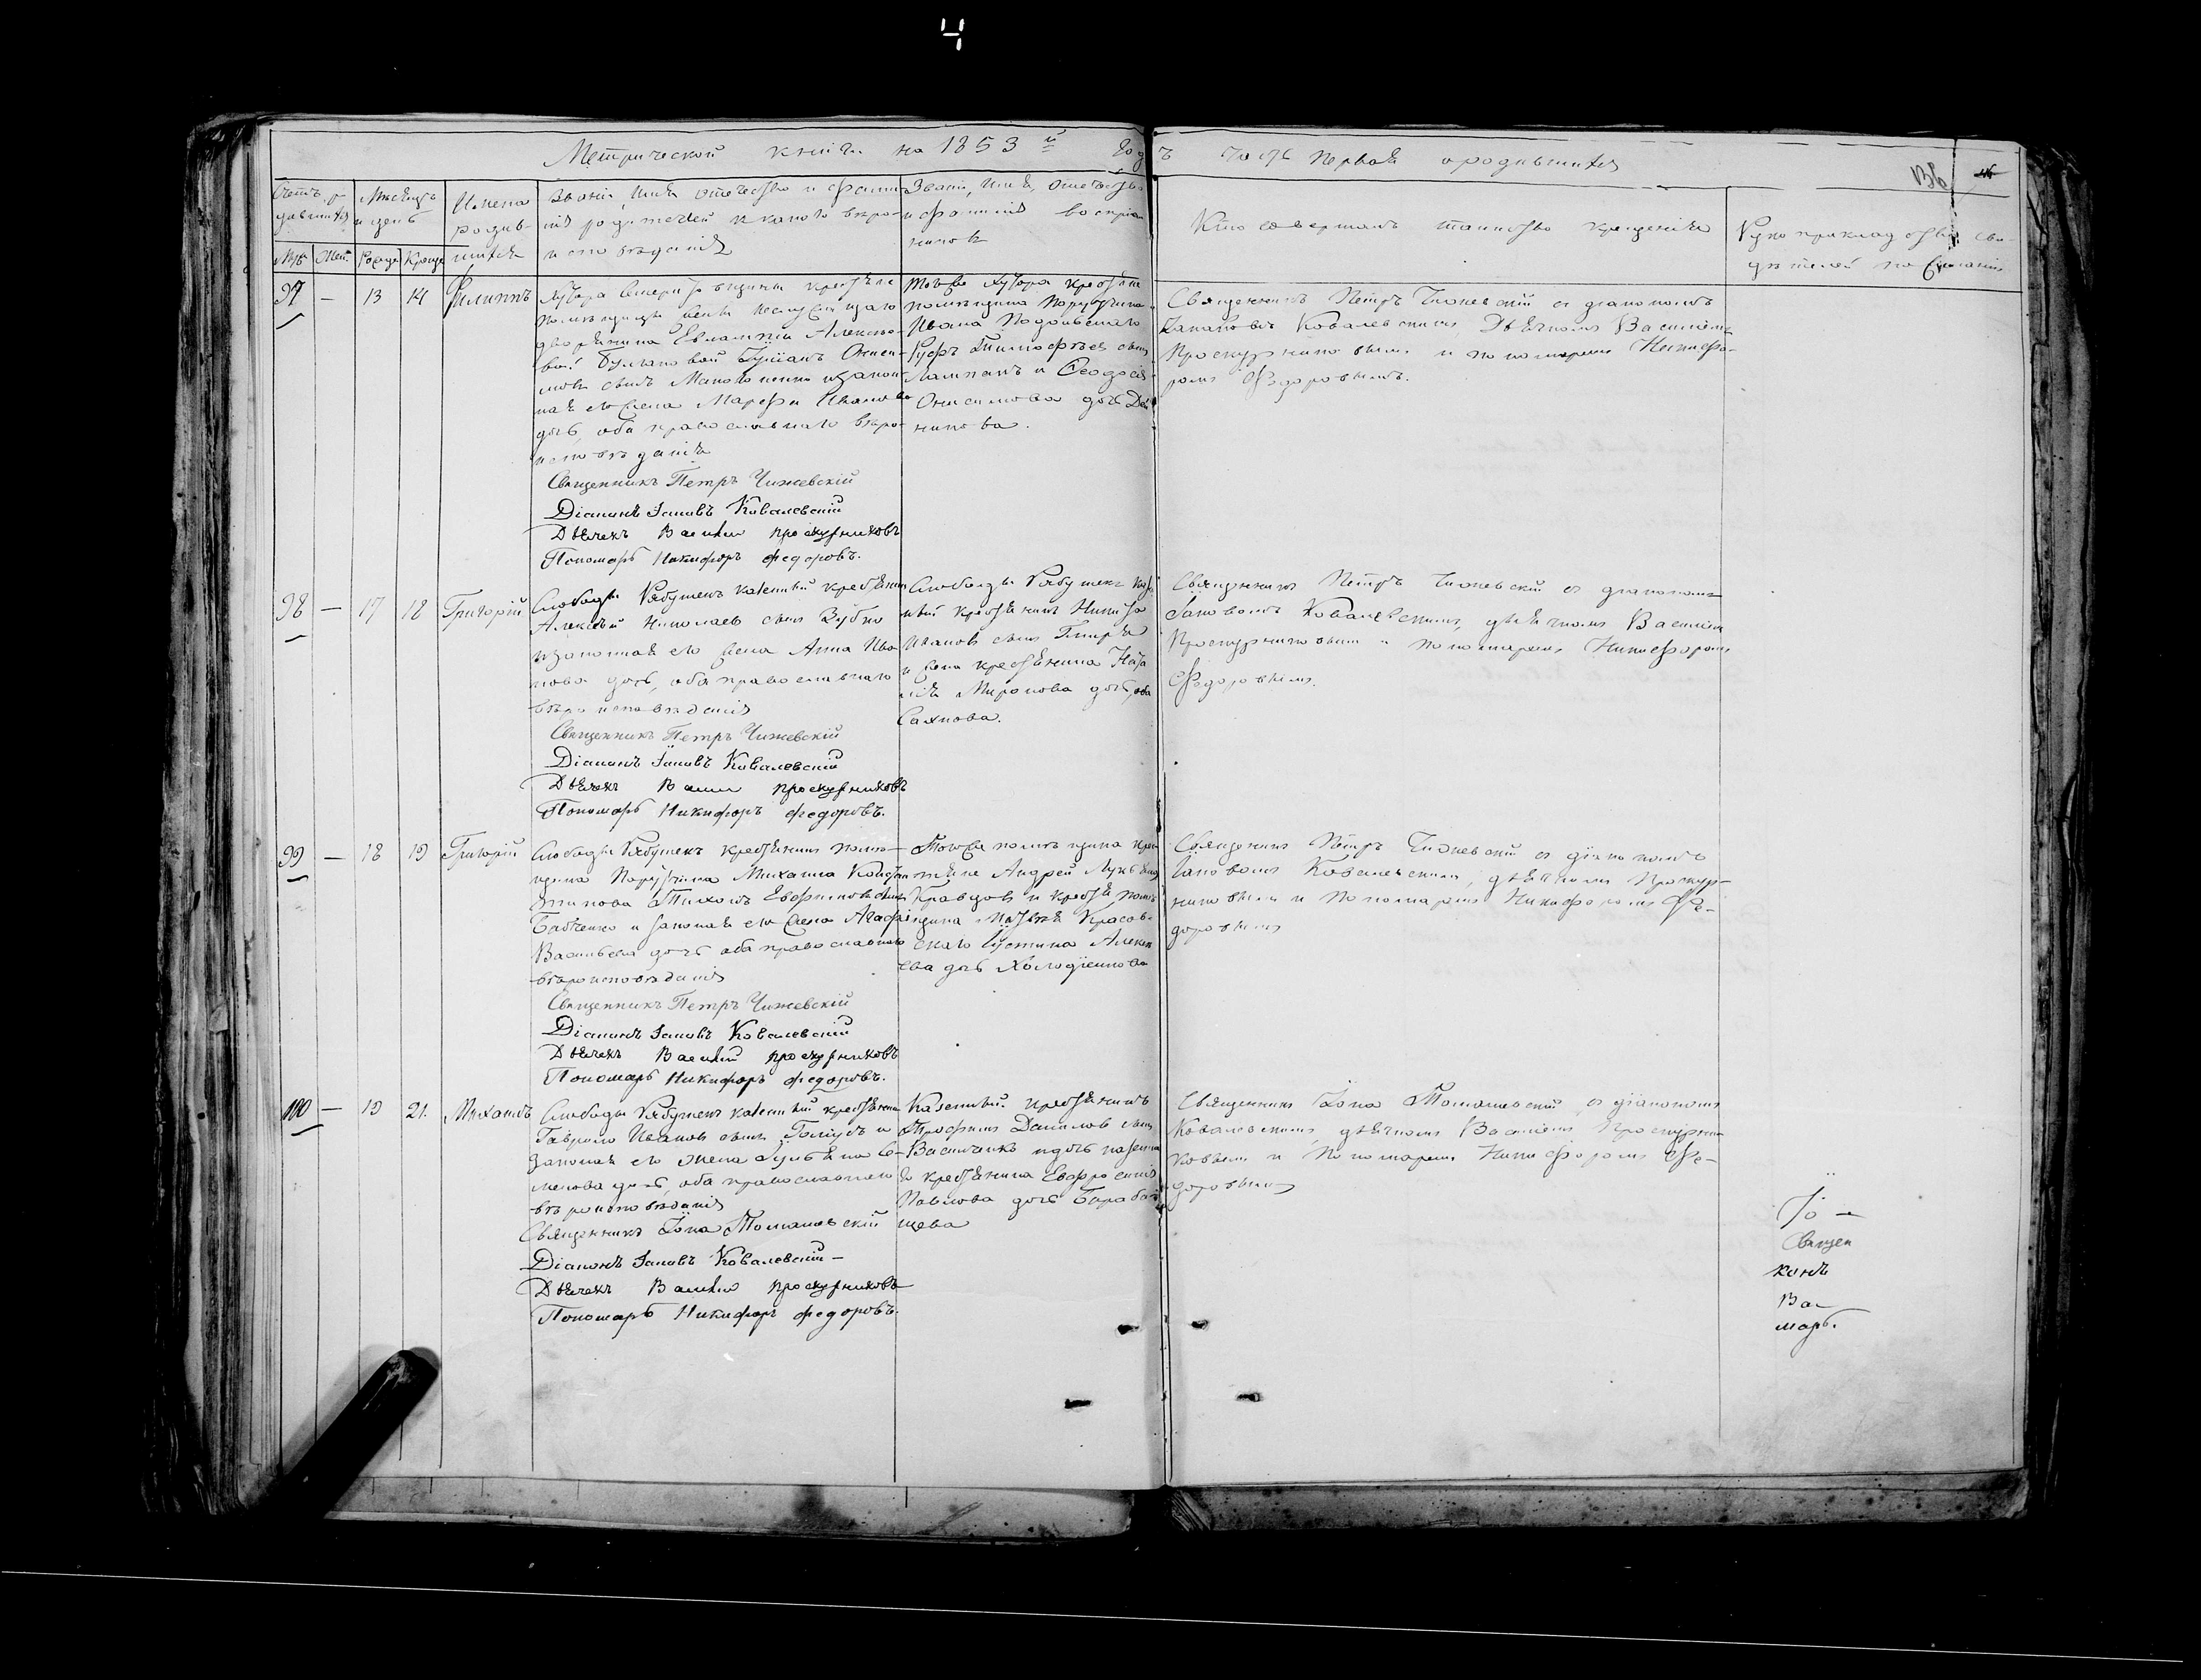 4
Метрической книги на 1853 й Годъ часть первая о родившихся
136
Счетъ ро
дившихся
Муж. Жен.
Мѣсяцъ
и день
Рожде Креще
Имена
родив-
шихся
Званіе, имя, отечество и фами
лія родителей и какого вѣро-
исповѣданія
Званіе, имя, отечество
и фамилія воспріем
никовъ
Кто совершалъ таинство крещенія
Рукоприкладство сви-
дѣтелей по желанію
97 — 13 14 Филиппъ
Хутора крестьяне
помѣщицы
дворянина Евлампіи Алексѣе-
вой Булановой Ониси-
мовъ сынъ и закон-
ная его жена Марфа Иванова
дочь, оба православнаго вѣро-
исповѣданія
Священникъ Петръ Чижевскій
Діаконъ Іаковъ Ковалевскій
Дьячекъ Василій Проскурниковъ
Пономарь Никифоръ Федоровъ.
Тогоже хутора крестьяне
помѣщика Порутчика
Ивана
Тимофѣевъ сынъ
и Феодосія
Онисимова дочь
Священникъ Петръ Чижевскій съ діакономъ
Іаковомъ Ковалевскимъ, Дьячкомъ Василіемъ
Проскурниковымъ и пономаремъ Никифо-
ромъ Федоровымъ.
98 — 17 18 Григорій
Слободы Рябушекъ казенный крестьянинъ
Алексѣй Николаевъ сынъ Зубко
и законная его жена Анна Ива
нова дочь, оба православнаго
вѣроисповѣданія
Священникъ Петръ Чижевскій
Діаконъ Іаковъ Ковалевскій
Дьячекъ Василій Проскурниковъ
Пономарь Никифоръ Федоровъ.
Слободы Рябушекъ казен
ный крестьянинъ Никита
Ивановъ сынъ
и жена крестьянина Ната
лія Миронова дочь
Сахнова.
Священникъ Петръ Чижевскій съ діакономъ
Іаковомъ Ковалевскимъ, дьячкомъ Василіемъ
Проскурниковымъ и пономаремъ Никифоромъ
Федоровымъ.
99 — 18 19 Григорій
Слободы Рябушекъ крестьянинъ помѣ-
щика Порутчика Михаила Констан
тинова Тихонъ Евфимовъ сынъ
Бабченко и законная его жена Агафія
Васильева дочь оба православнаго
вѣроисповѣданія
Священникъ Петръ Чижевскій
Діаконъ Іаковъ Ковалевскій
Дьячекъ Василій Проскурниковъ
Пономарь Никифоръ Федоровъ.
Тогоже помѣщика крес
тьяне Андрей Лукьяновъ
Кравцовъ и крестьян помѣ
щика Матвѣя Красов-
скаго Устина Алексѣ
ева дочь Холодіенкова
Священникъ Петръ Чижевскій съ діакономъ
Іаковомъ Ковалевскимъ, дьячкомъ Проскур-
никовымъ и пономаремъ Никифоромъ Фе-
доровымъ
100 — 19 21. Михаилъ
Слободы Рябушекъ казенный крестьянинъ
Гаврило Ивановъ сынъ Голубъ и
законная его жена Ульяна Се-
менова дочь, оба православнаго
вѣроисповѣданія
Священникъ Іона Томашевскій
Діаконъ Іаковъ Ковалевскій —
Дьячекъ Василій Проскурниковъ
Пономарь Никифоръ Федоровъ.
Казенный крестьянинъ
Трофимъ Даниловъ сынъ
Васильченко и дочь казенна
го крестьянина Евфросинія
Павлова дочь Бараба
щева
Священникъ Іона Томашевскій съ діакономъ
Ковалевскимъ, дьячкомъ Василіемъ Проскурни-
ковымъ и пономаремъ Никифоромъ Фе-
доровымъ
Священ
конъ
Ва
марь.